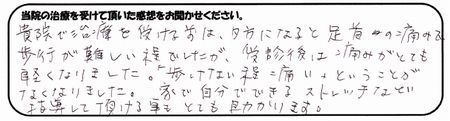 当院の治療を受けて頂いた感想をお聞かせください。
貴院で治療を受ける前は、夕方になると足首の痛みで
歩行が難しい程でしたが、受診後は痛みがとても
軽くなりました。"歩けない程痛い"ということが
なくなりました。家で自分でできるストレッチなど
指導して頂ける事もとても助かります。